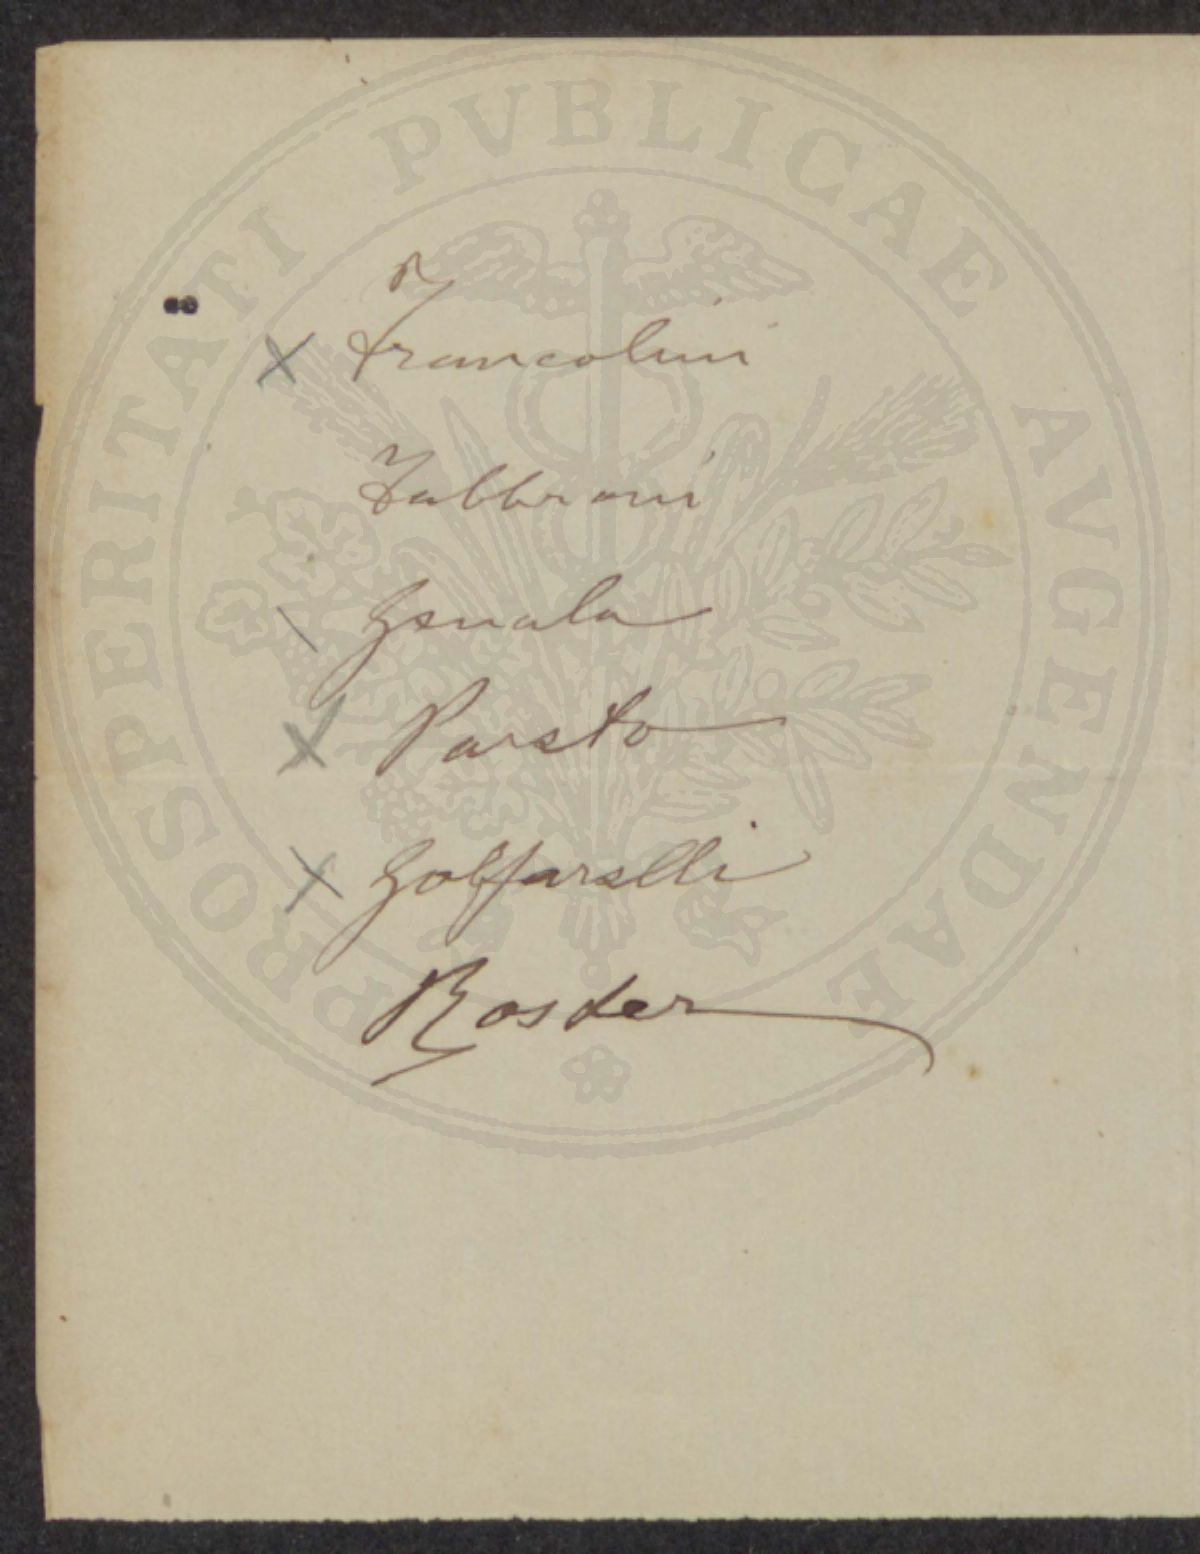 PROSPERITATI PVBLICAE AVGENDAE
x Francolini
Fabbroni
\ Genala
x Pareto
x Golfarelli
Roster